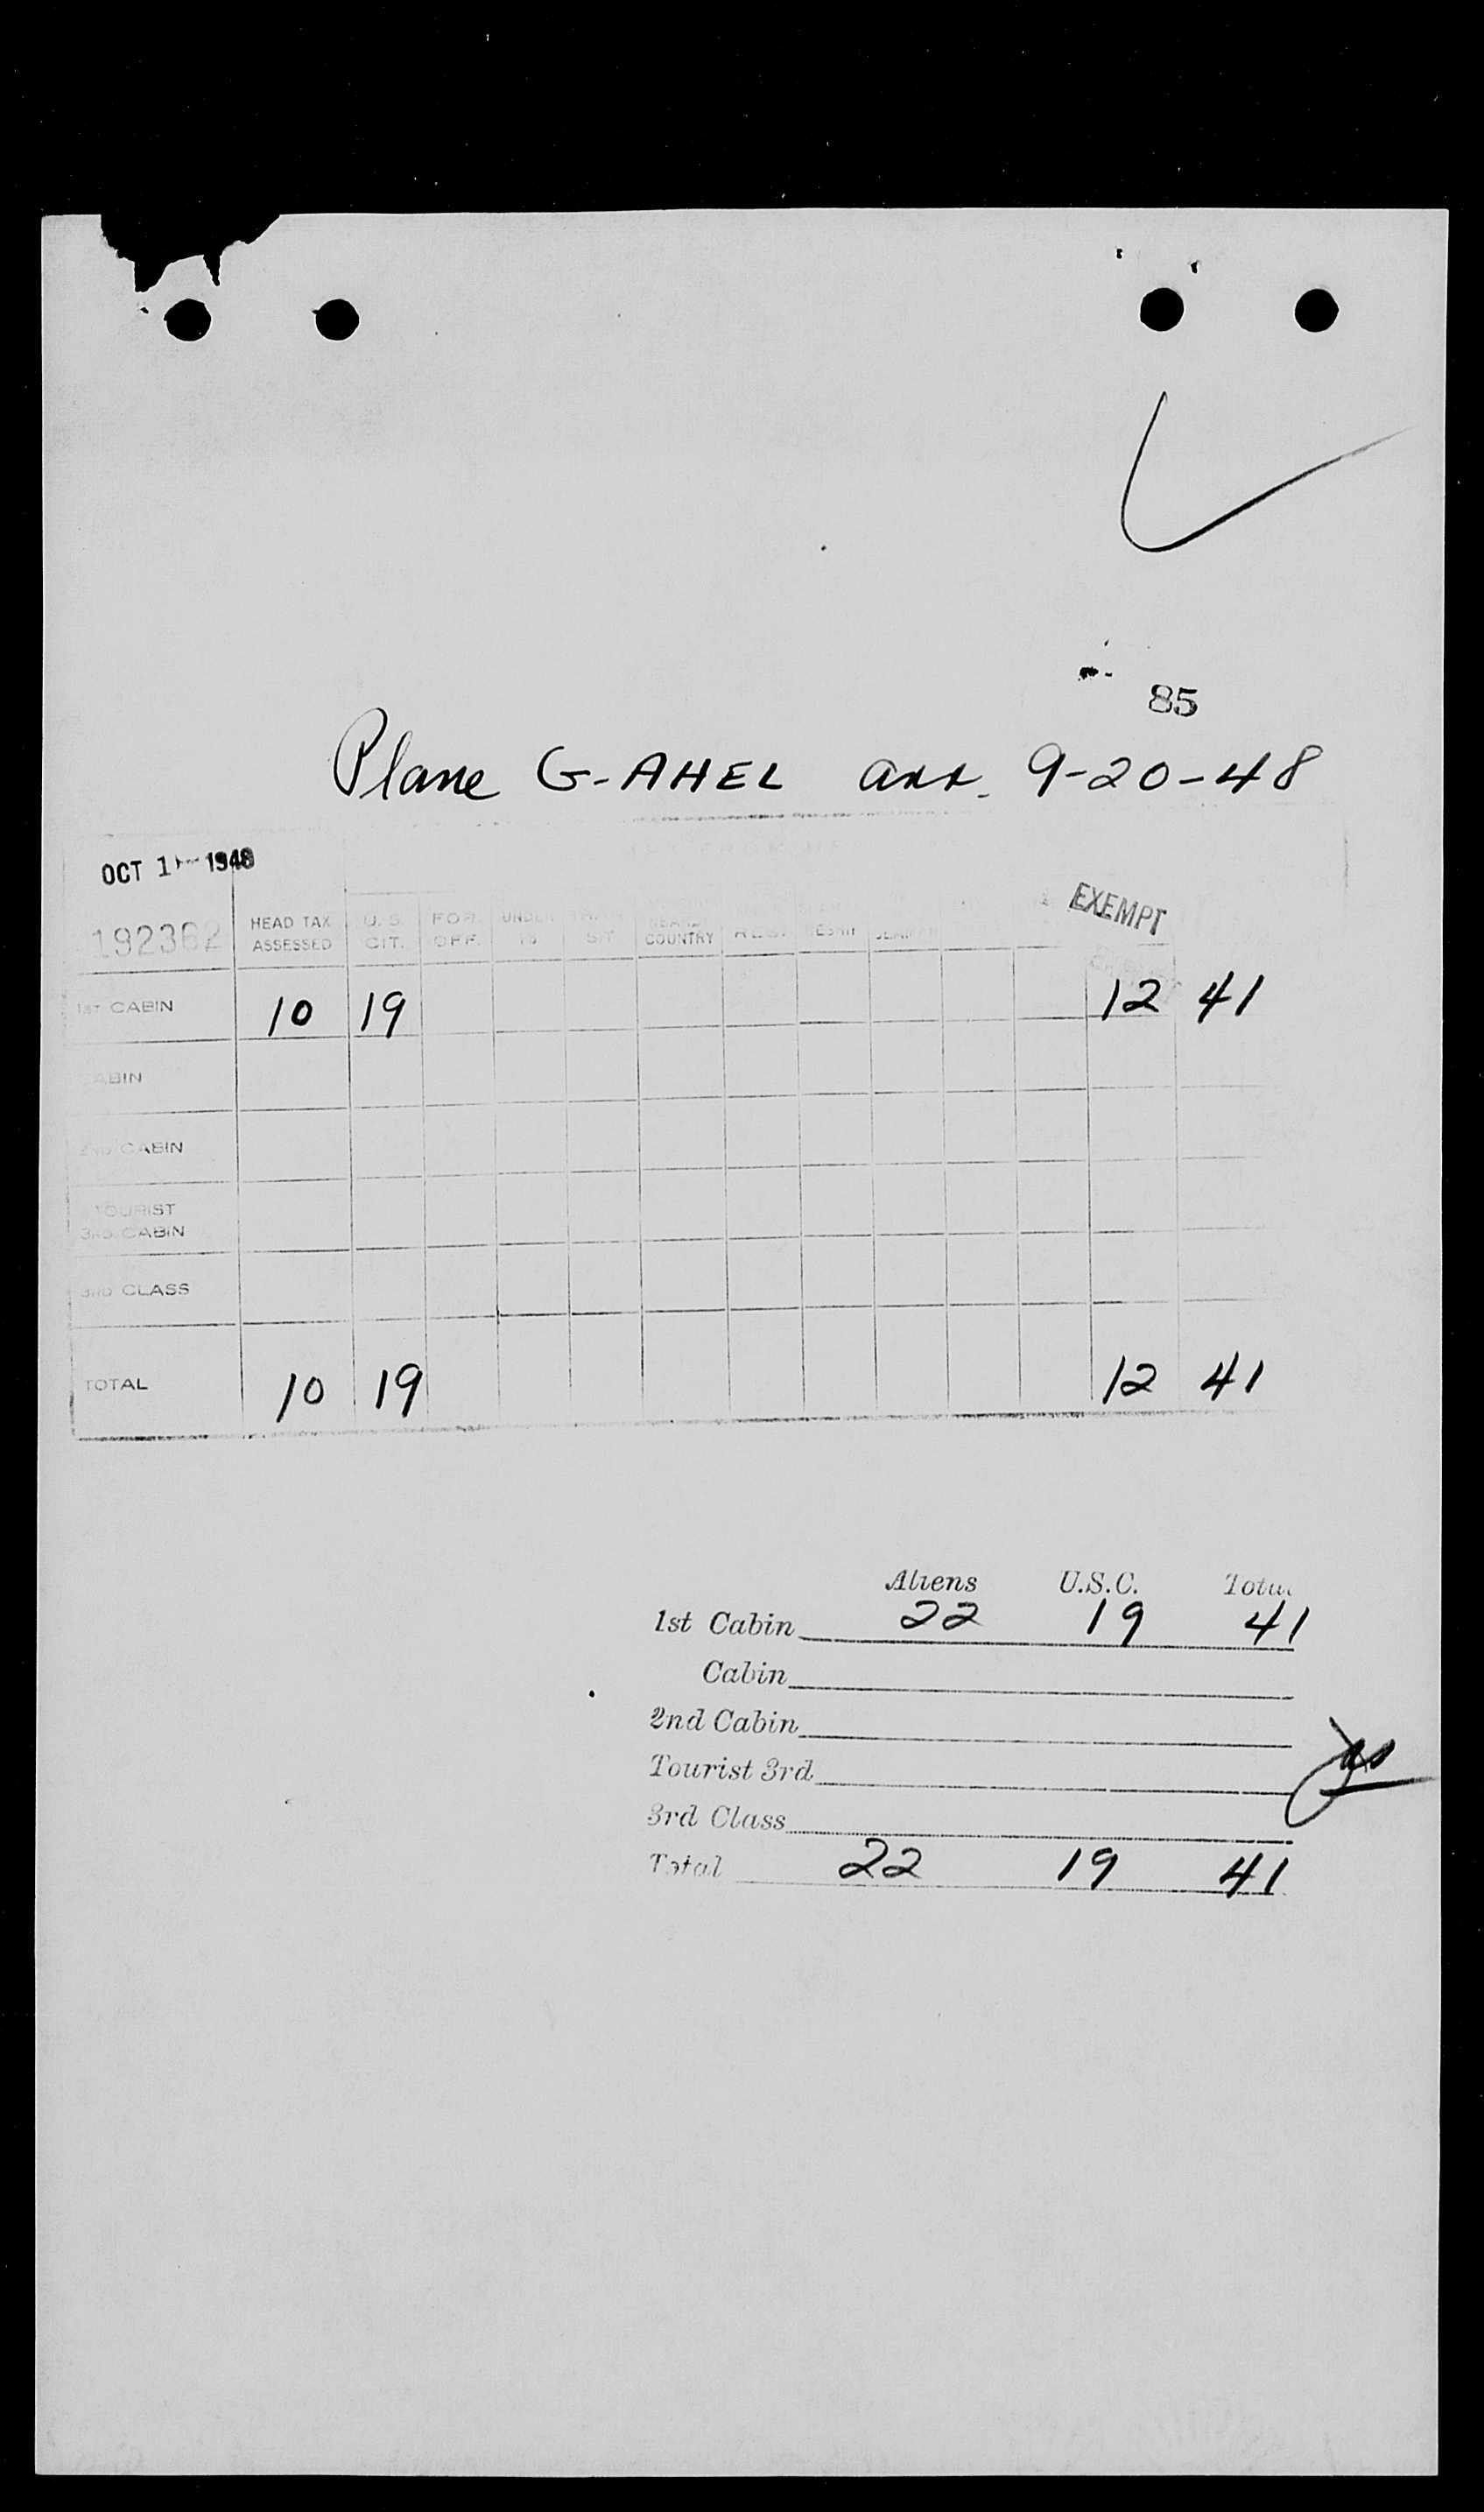 85
Plane G-AHEL arr. 9-20-48
OCT 1 1948
EXEMPT
192362 HEAD TAX ASSESSED U.S. CIT. FOR. OFF. UNDER 16 COUNTRY
1ST CABIN 10 19 12 41
CABIN
2ND CABIN
TOURIST
3RD CABIN
3RD CLASS
TOTAL 10 19 12 41
Aliens U.S.C. Total
1st Cabin 22 19 41
Cabin
2nd Cabin
Tourist 3rd
3rd Class
Total 22 19 41